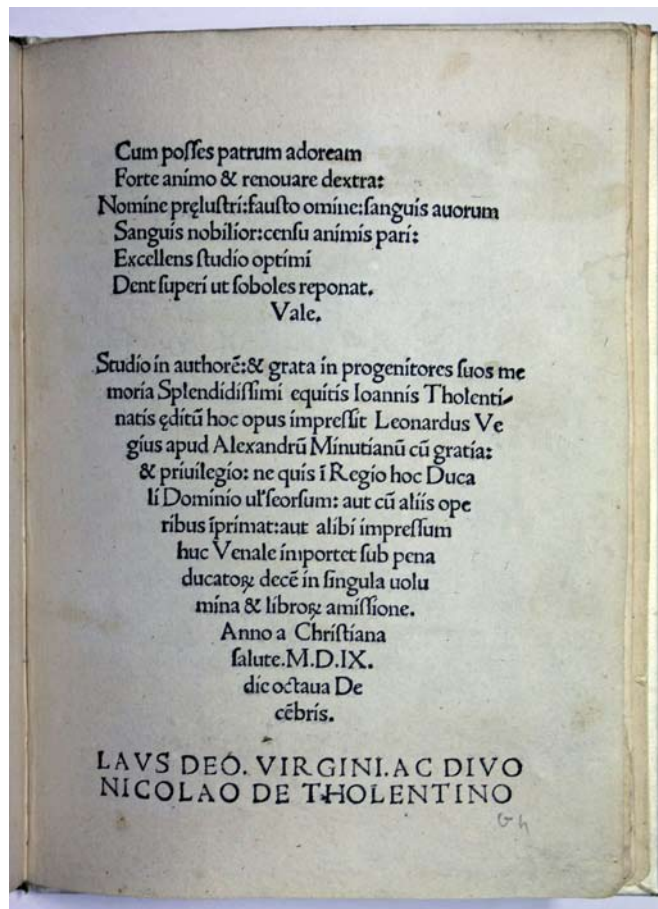 Cum poſſes patrum adoream
Forte animo & renouare dextra:
Nomine pręluſtri:fauſto omine:ſanguis auorum
Sanguis nobilior:cenſu animis pari:
Excellens ſtudio optimi
Dent ſuperi ut ſoboles reponat.
Vale.
Studio in authorē:& grata in progenitores ſuos me
moria Splendidiſſimi equitis Ioannis Tholenti-
natis ęditū hoc opus impreſſit Leonardus Ve
gius apud Alexandrū Minutianū cū gratia:
& priuilegio: ne quis ī Regio hoc Duca
li Dominio ul'ſeorſum: aut cū aliis ope
ribus īprimat:aut alibi impreſſum
huc Venale importet ſub pena
ducatoꝝ decē in ſingula uolu
mina & libroꝝ amiſſione.
Anno a Chriſtiana
ſalute.M.D.IX.
die octaua De
cēbris.
LAVS DEO. VIRGINI.AC DIVO
NICOLAO DE THOLENTINO